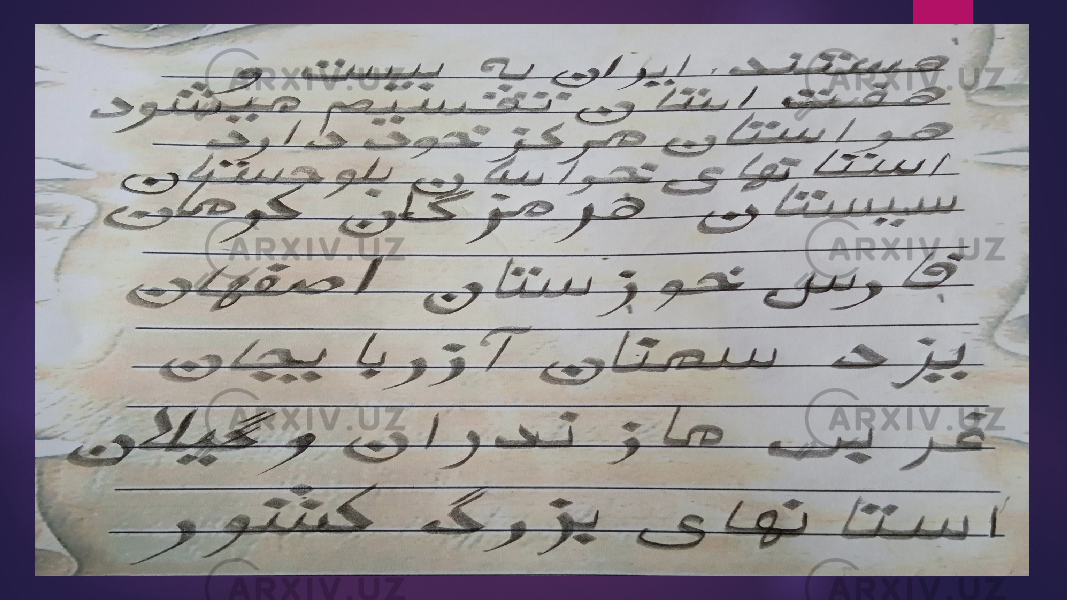 هستند. ایران به بیست و
هفت استان تقسیم میشود
هر استان مرکز خود دارد
استانهای خراسان بلوچستان
سیستان هرمزگان کرمان
فارس خوزستان اصفهان
یزد سمنان آذربایجان
غربی مازندران و گیلان
استانهای بزرگ کشور
ARXIV.UZ